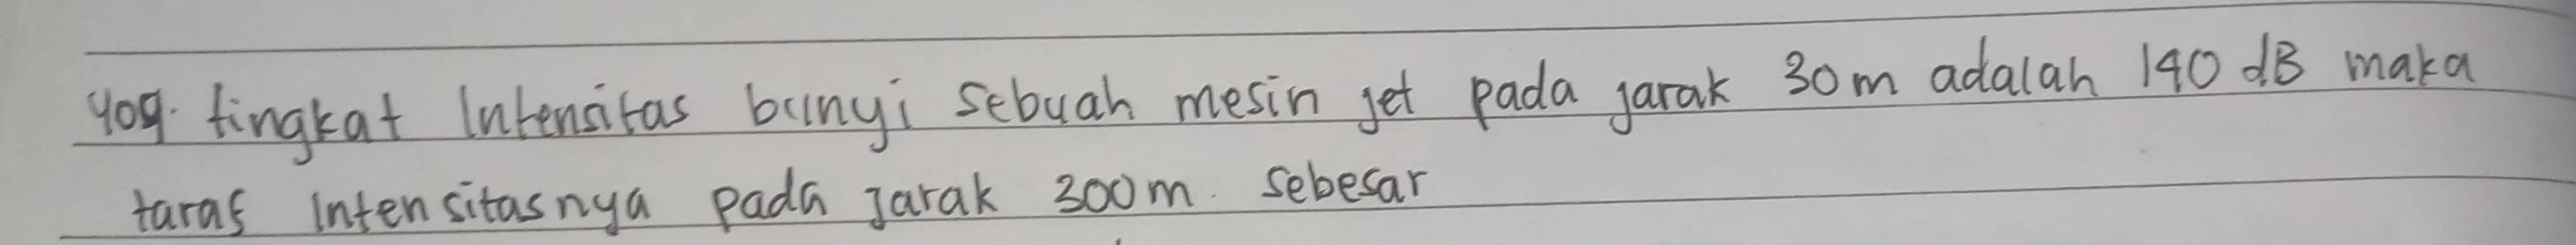 409. tingkat Intensitas bunyi sebuah mesin jet pada jarak 30 m adalah 140 dB maka
taraf intensitasnya pada jarak 300 m. sebesar